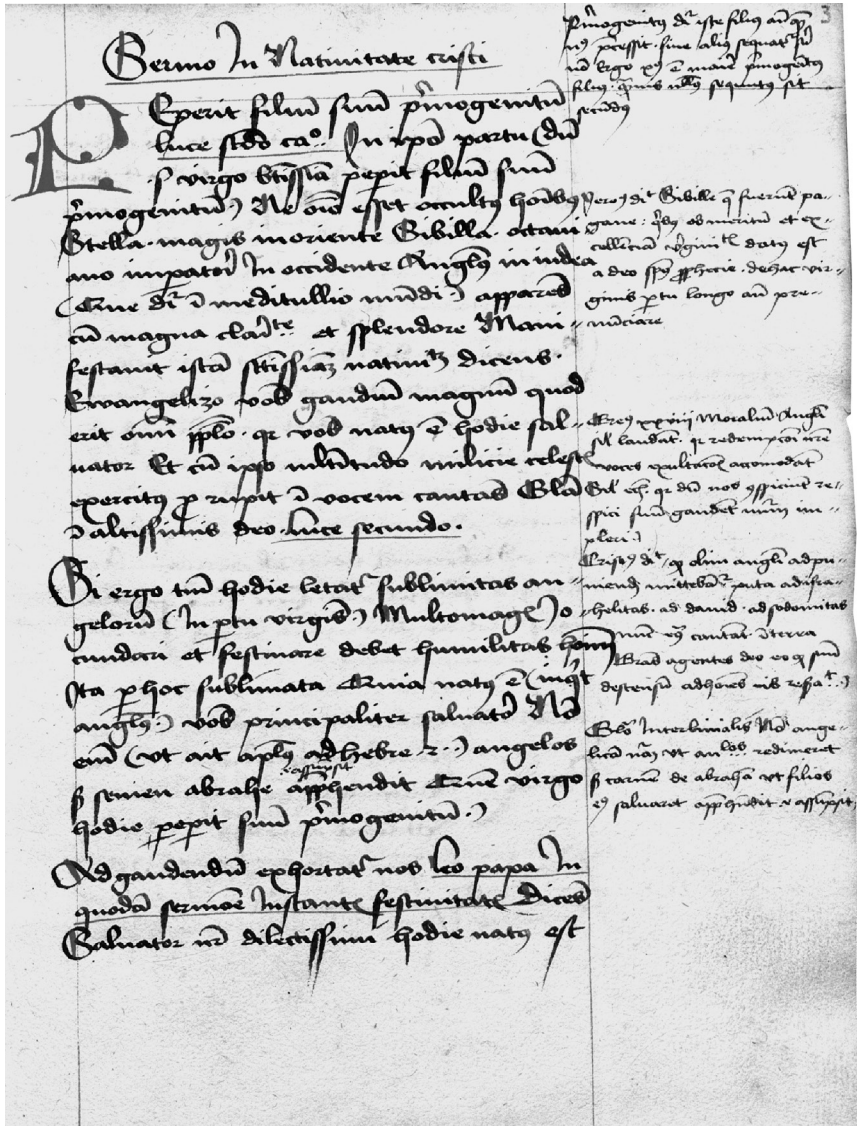 Sermo In Natiuitate cristi
PEperit filiũ suũ pͥmogenitũ
luce scdo ca⁰. In ipõ partu (dũ
s virgo btissiã peperit filiũ suũ
pͥmogenitũ) Ne oĩo esset occultꝯ hoĩbꝯ
Stella magis in oriente Sibilla octaui
ano impatori In occidente Anglꝰ in iudea
(Que dr̃ ĩ meditullio mũdi) apparẽs
cũ magna clarite et splendore Mani-
festauit istã sctissiãz natiuitz dicens.
Ewangelizo vob gaudiũ magnũ quod
erit omi pplo. qr vob natꝯ ẽ hodie sal-
uator Et cũ ipso multitudo milicie celest
exercitꝯ prupit ĩ vocem cantãs Glã
ĩ altissimis deo. luce secundo.
Si ergo tm̃ hodie letatr sublimitas an-
gelorũ (In ptu virgis) Multomagꝭ Jo-
cundari et festinare debet humilitas hoĩm
Ita p hoc sublimata Quia natꝯ ẽ (inqt
anglꝯ) vob principaliter saluator Nõ
em̃ (vt ait aplꝯ ad hebre. 2.) angelos
ꝭ assumpsit
ß semen abrahe apphendit Quẽ virgo
hodie peperit suũ pͥmogenitũ.
Ad gaudendũ exhortatr nos leo papa In
quodã sermõe Instantꝭ festiuitatꝭ Dicẽs
Saluator nr̃ dilectissimi hodie natꝯ est
3
Pͥmogenitꝯ dr̃ iste filiꝯ añ quẽ
nꝯ pcessit. siue aliꝯ sequatr siue
nõ Ergo xpꝯ ẽ marie pͥmogenitꝯ
filiꝯ. quis nllꝯ sequutꝯ sit
secũdꝯ
dit Sibille q̃ fuerũt pa-
gane: qbꝯ ob meritũ et ex-
cellẽciã vginitꝭ datꝯ est
a deo spũs pphecie. de hac vir-
ginis ptu longo añ pre-
nũciare
Greꝯ xxviij Moraliũ Angli
sil laudãt. qr redempcõi nr̃e
voces exultacõis accomodãt
Sil eciã qr dũ nos ꝯspiciũt re-
cipi suũ gaudẽt nũm im-
pleri.
Crisoꝯ dt. qꝫ olim angli ad pu-
niendũ mittebãtr puta ad isra-
helitas. ad dauid. ad sodomitas
nũc ꝟo cantãt ĩ terra
Grãs agentes deo eo qꝫ suũ
descensũ ad hoĩes eis
Glo Interlinialis Nõ ange-
licã nãm vt anlos redimeret
ß carnẽ de abrahã vt filios
eꝯ saluaret apphẽdit ꝭ assũpsit